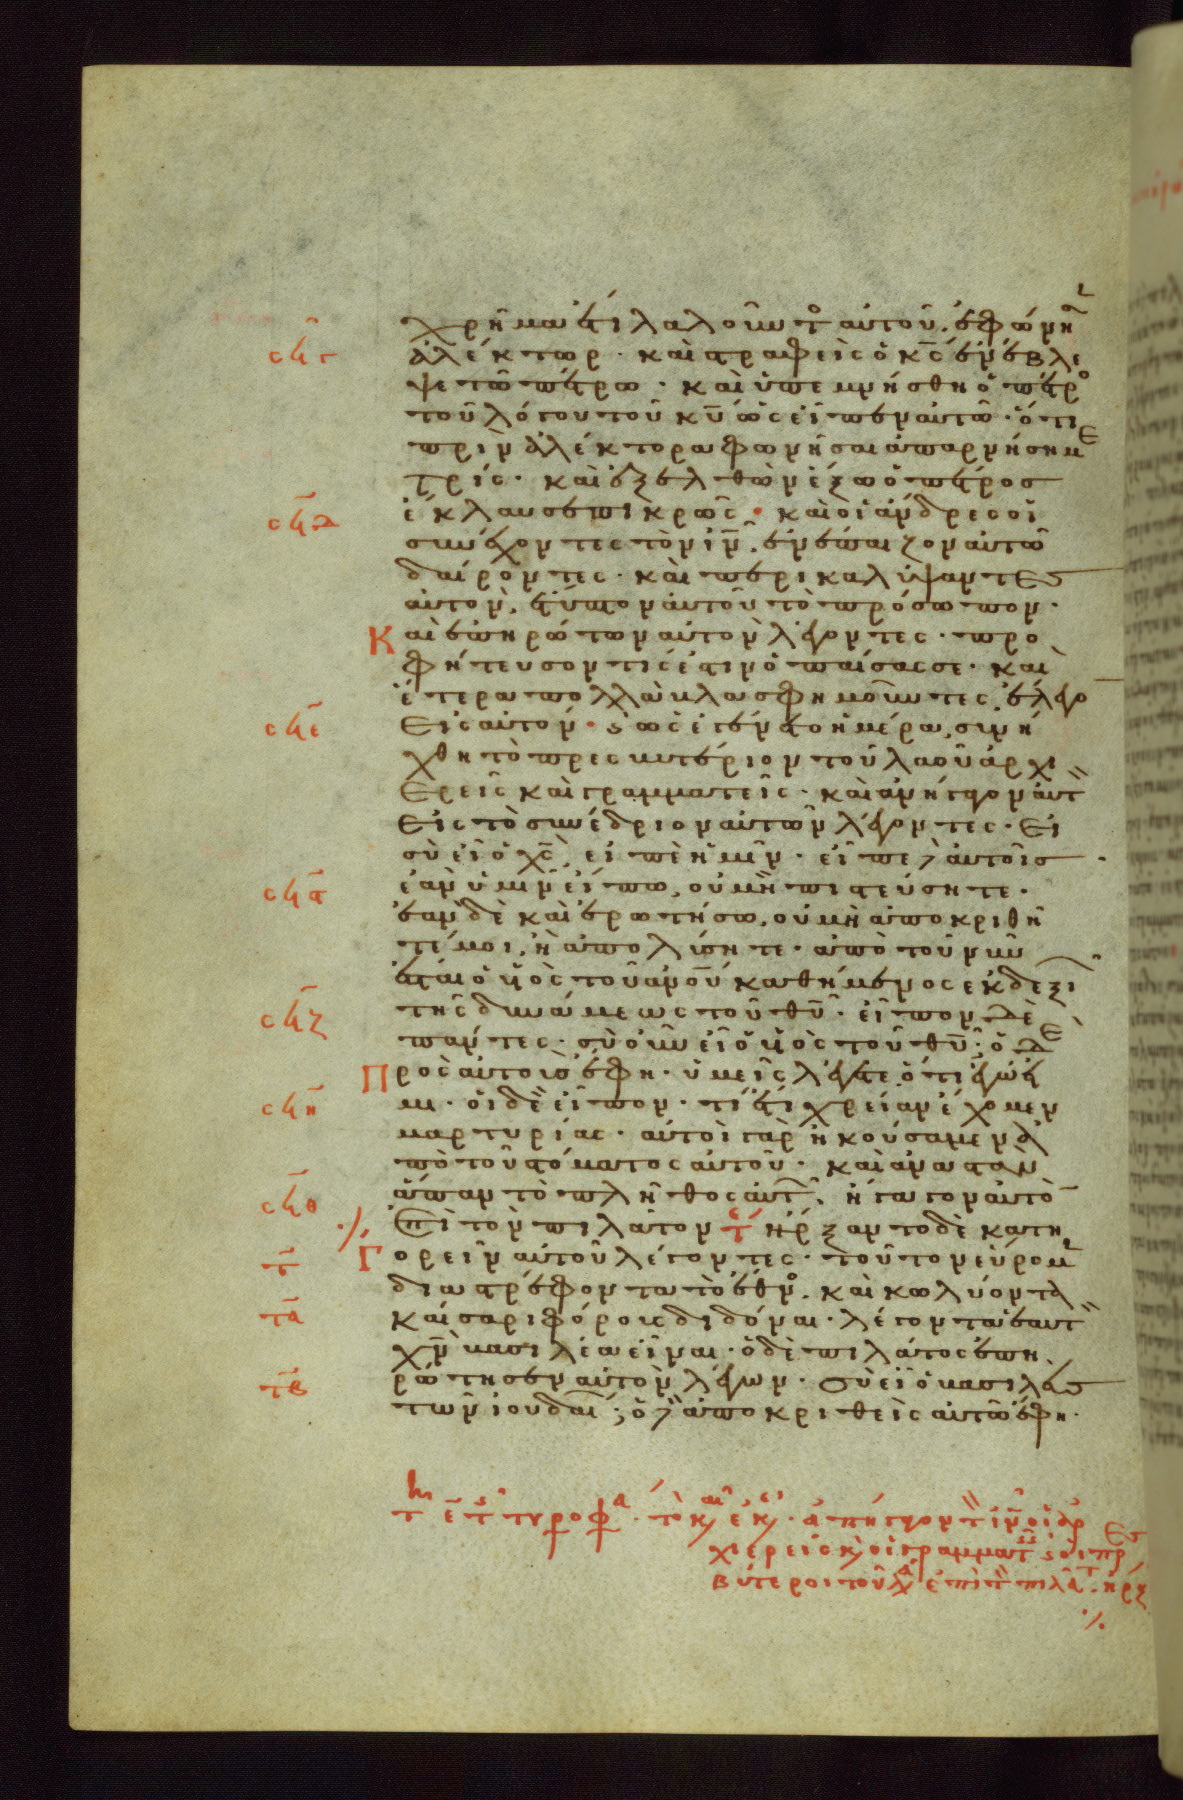 χρῆμα ἔτι λαλοῦντο αὐτοῦ, ἐφώνη
σϟγ ἀλέκτωρ · καὶ στραφεὶς ὁ κς ἐνέβλε
ψε τῶ πέτρω · καὶ ὑπεμνήσθη ὁ πέτρο
τοῦ λόγου τοῦ κυ ὡς εἶπεν αὐτῶ · ὅτι
πρὶν ἀλέκτορα φωνῆσαι ἀπαρνήση με
τρίς · καὶ ἐξελθὼν ἔξω ὁ πέτρος
σϟδ ἔκλαυσε πικρῶς · καὶ οἱ ἄνδρες οἱ
συνέχοντες τὸν ιν, ἐνέπαιζον αὐτῶ
δαίροντες · καὶ περικαλύψαντες
αὐτὸν, ἔτυπτον αὐτοῦ τὸ πρόσωπον ·
Καὶ ἐπηρώτων αὐτὸν λέγοντες · προ
φήτευσον τίς ἐστιν ὁ παίσας σε · καὶ
ἕτερα πολλὰ βλασφημοῦντες ἔλεγο
σϟε εἰς αὐτόν · καὶ ὡς ἐγένετο ἡμέρα, συνή
χθη τὸ πρεσβυτέριον τοῦ λαοῦ ἀρχι
ερεῖς καὶ γραμματεῖς · καὶ ἀνήγαγον αὐτ
εἰς τὸ συνέδριον αὐτῶν λέγοντες · εἰ
σὺ εἶ ὁ χς, εἰπὲ ἡμῖν · εἶπε δ αὐτοῖς ·
σϟϛ ἐὰν ὑμῖν εἴπω, οὐ μὴ πιστεύσητε ·
ἐὰν δὲ καὶ ἐρωτήσω, οὐ μὴ ἀποκριθῆ
τέ μοι, ἢ ἀπολύσητε · ἀπὸ τοῦ νῦν
ἔσται ὁ υἱὸς τοῦ ανου καθήμενος ἐκ δεξι
σϟζ τῆς δυνάμεως τοῦ θυ · εἶπον δὲ
πάντες · σὺ οὖν εἶ ὁ υἱὸς τοῦ θυ; ὁ δε
Πρὸς αὐτοὺς ἔφη · ὑμεῖς λέγετε ὅτι ἐγώ εἰ
σϟη μι · οἱ δὲ εἶπον · τί ἔτι χρείαν ἔχομεν
μαρτυρίας · αὐτοὶ γὰρ ἠκούσαμεν ἀ
πὸ τοῦ στόματος αὐτοῦ · καὶ ἀναστὰν
σϟθ ἅπαν τὸ πλῆθος αὐτ, ἤγαγον αὐτὸ
ἐπὶ τὸν πιλᾶτον ἤρξαντο δὲ κατη
τ Γορεῖν αὐτοῦ λέγοντες · τοῦτον εὕρομ
διαστρέφοντα τὸ ἔθνο, καὶ κωλύοντα
τα καίσαρι φόρους διδόναι · λέγοντα ἑαυτ
χν βασιλέα εἶναι · ὁ δὲ πιλᾶτος ἐπη
τβ ρώτησεν αὐτὸν λέγων · σὺ εἶ ὁ βασιλεὺς
τῶν ἰουδαί; ὁ δ ἀποκριθεὶς αὐτῶ ἔφη ·
τυροφα · τῶ κ ἐκ · ἀπήγαγον τ ιν οἱ ἀρ
χιερεῖς κ οἱ γραμματ κ οἱ πρες
βύτεροι τοῦ λα ἐπὶ τ πιλατ · ἤρξ